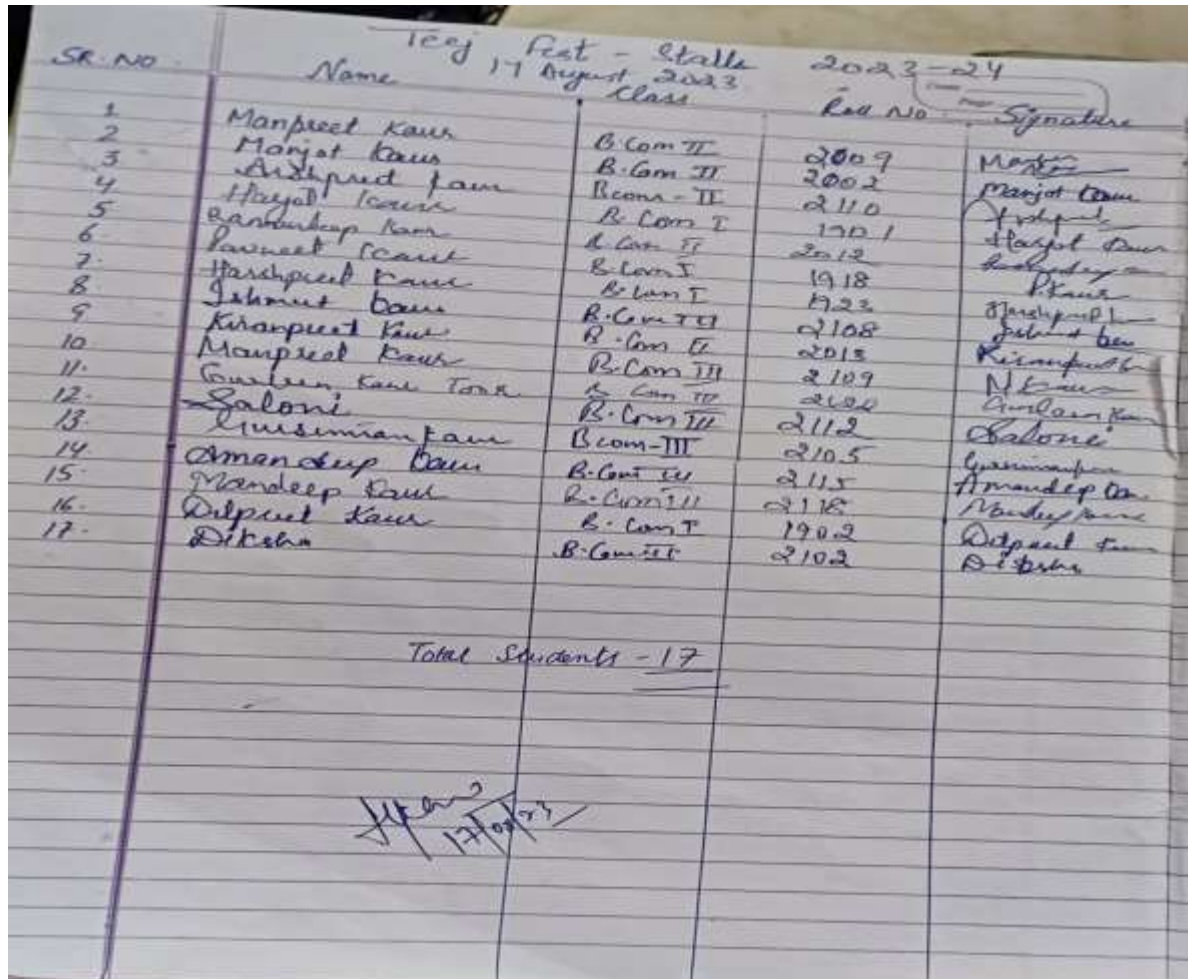 Teej Fest - Stalls 2023-24
17 August 2023
SR. NO. Name Class Roll No. Signature
1 Manpreet Kaur B.Com II 2009
2 Manjot Kaur B.Com II 2002 Manjot Kaur
3 Arshpreet Kaur Bcom - II 2110
4 Harjot Kaur B.Com I 1901 Harjot Kaur
5. Kaur B.Com II 2012
6. Pavneet Kaur B.Com I 1918 PKaur
7. Harshpreet Kaur B.Com I 1923
8. Ishmeet Kaur B.Com III 2108
9 Kiranpreet Kaur B.Com II 2013
10 Manpreet Kaur B.Com III 2109
11. Kaur B.Com III
12. Saloni B.Com III 2112 Saloni
13. Gursimran Kaur Bcom-III 2105
14. Amandeep Kaur B.Com III 2115 Amandeep
15. Mandeep Kaur B.Com III 2118 Mandeep Kaur
16. Dilpreet Kaur B.Com I 1902 Dilpreet Kaur
17. Diksha B.Com III 2102 Diksha
Total Students - 17
17/08/23